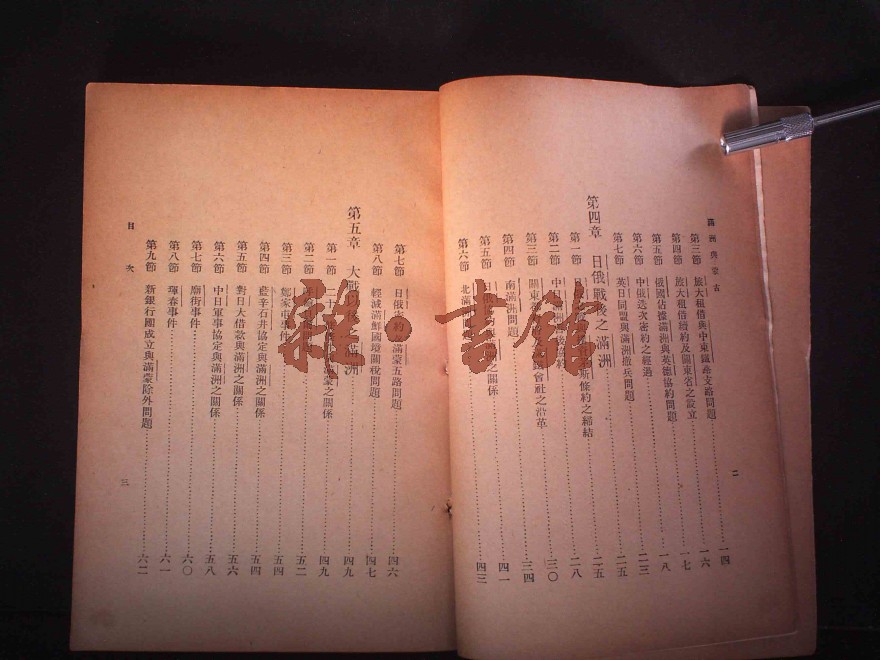 滿洲與蒙古
第三節　旅大租借與中東鐵路支路問題………一四
第四節　旅大租借續約及關東省之設立………一六
第五節　俄國佔據滿洲與英德協約問題………一七
第六節　中俄造次密約之經過………一八
第七節　英日同盟與滿洲撤兵問題………二三
第四章　日俄戰後之滿洲………二五
第一節　日　斯條約之締結………二五
第二節　中日　………二八
第三節　關東　會社之沿革………三〇
第四節　南滿洲問題………三四
第五節　日俄　之關係………四一
第六節　北滿　………四三
二
第七節　日俄　約　滿蒙五路問題………四六
第八節　輕減滿鮮國境關稅問題………四七
第五章　大戰　之滿洲………四九
第一節　二十　滿蒙之關係………四九
第二節　………五二
第三節　鄭家屯事件………五四
第四節　藍辛石井協定與滿洲之關係………五四
第五節　對日大借款與滿洲之關係………五六
第六節　中日軍事協定與滿洲之關係………五八
第七節　廟街事件………六〇
第八節　琿春事件………六一
第九節　新銀行團成立與滿蒙除外問題………六二
目次
三
雜·書館